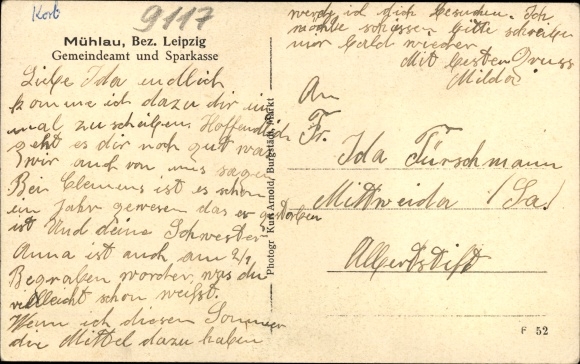 Korb
9117
Mühlau, Bez. Leipzig
Gemeindeamt und Sparkasse
Liebe Ida endlich
komme ich dazu dir ein
mal zu schreiben. Hoffendlich
geht es dir noch gut was
wir auch von uns sagen
Bei Clemens ist es schon
ein Jahr gewesen das er gestorben
ist Und deine Schwester
Anna ist auch, am 2/1
Begraben worden, was du
vielleicht schon weißt.
Wenn ich diesen Sommer
die Mittel dazu habe
werde ich dich besuchen. Ich
möchte schliessen bitte schreibe
nur bald wieder
Mit besten Gruss
Milda
Photogr Kurt Arnold, Burgstädt, Markt
An
Fr.
Ida Türschmann
Mittweida /Sa.)
Albertstift
F 52